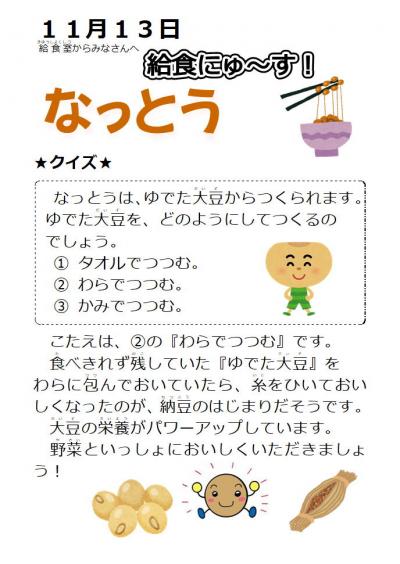 １１月１３日
給食室からみなさんへ
給食にゅ～す！
なっとう
★クイズ★
なっとうは、ゆでた大豆からつくられます。
ゆでた大豆を、どのようにしてつくるの
でしょう。
① タオルでつつむ。
② わらでつつむ。
③ かみでつつむ。
こたえは、②の『わらでつつむ』です。
食べきれず残していた『ゆでた大豆』を
わらに包んでおいていたら、糸をひいておい
しくなったのが、納豆のはじまりだそうです。
大豆の栄養がパワーアップしています。
野菜といっしょにおいしくいただきましょ
う！